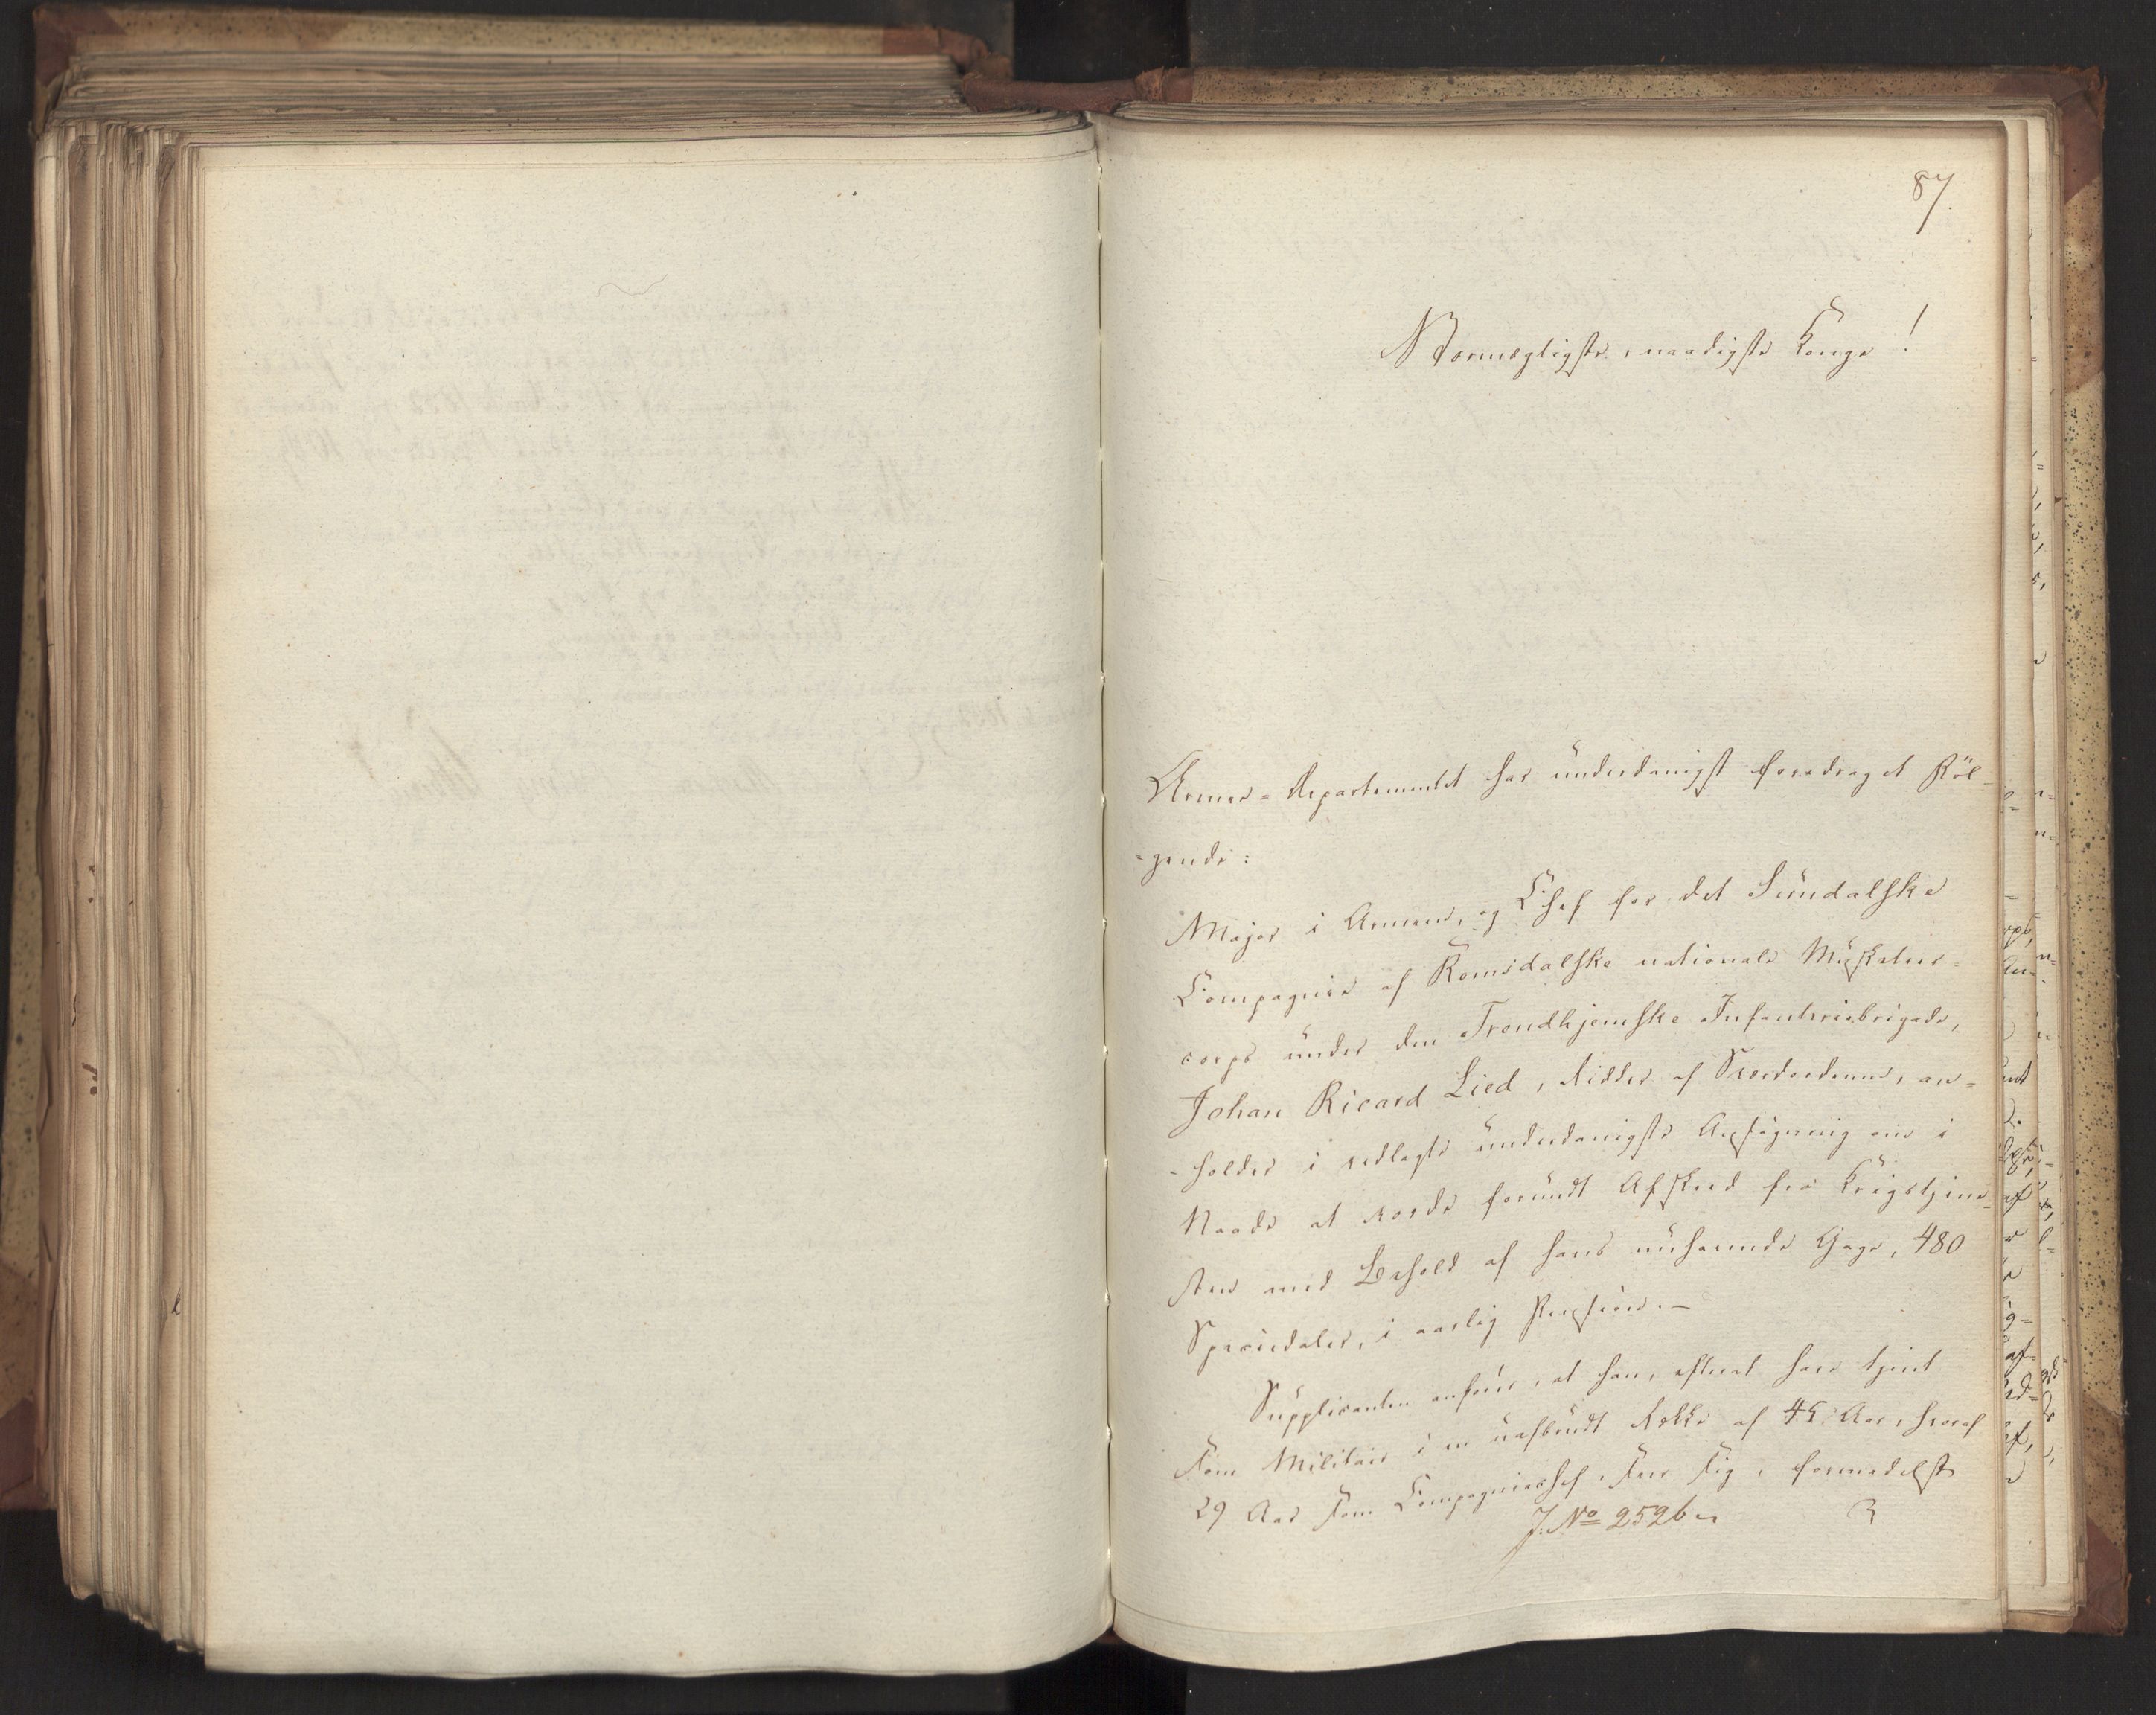 87.
Stormægtigste, naadigste Konge!
Armee-Departementet har underdanigst foredraget Föl-
-gende:
Major i Armeen, og Chef for det Sundalske
Compagnie af Romsdalske nationale Musketeer-
corps under den Trondhjemske Infanteriebrigade,
Johan Ricard Lied, Ridder af Sværdordenen, an-
-holder i vedlagte underdanigste Ansögning om i
Naade at vorde forundt Afskeed fra Krigstjene-
sten med Behold af hans nuhavende Gage, 480
Speciedaler, i aarlig Pension.-
Supplicanten anförer, at han, efterat have tjent
som Militair i en uafbrudt Række af 45 Aar, hvoraf
29 Aar som Compagniechef, seer sig, formedelst
J. No 2526